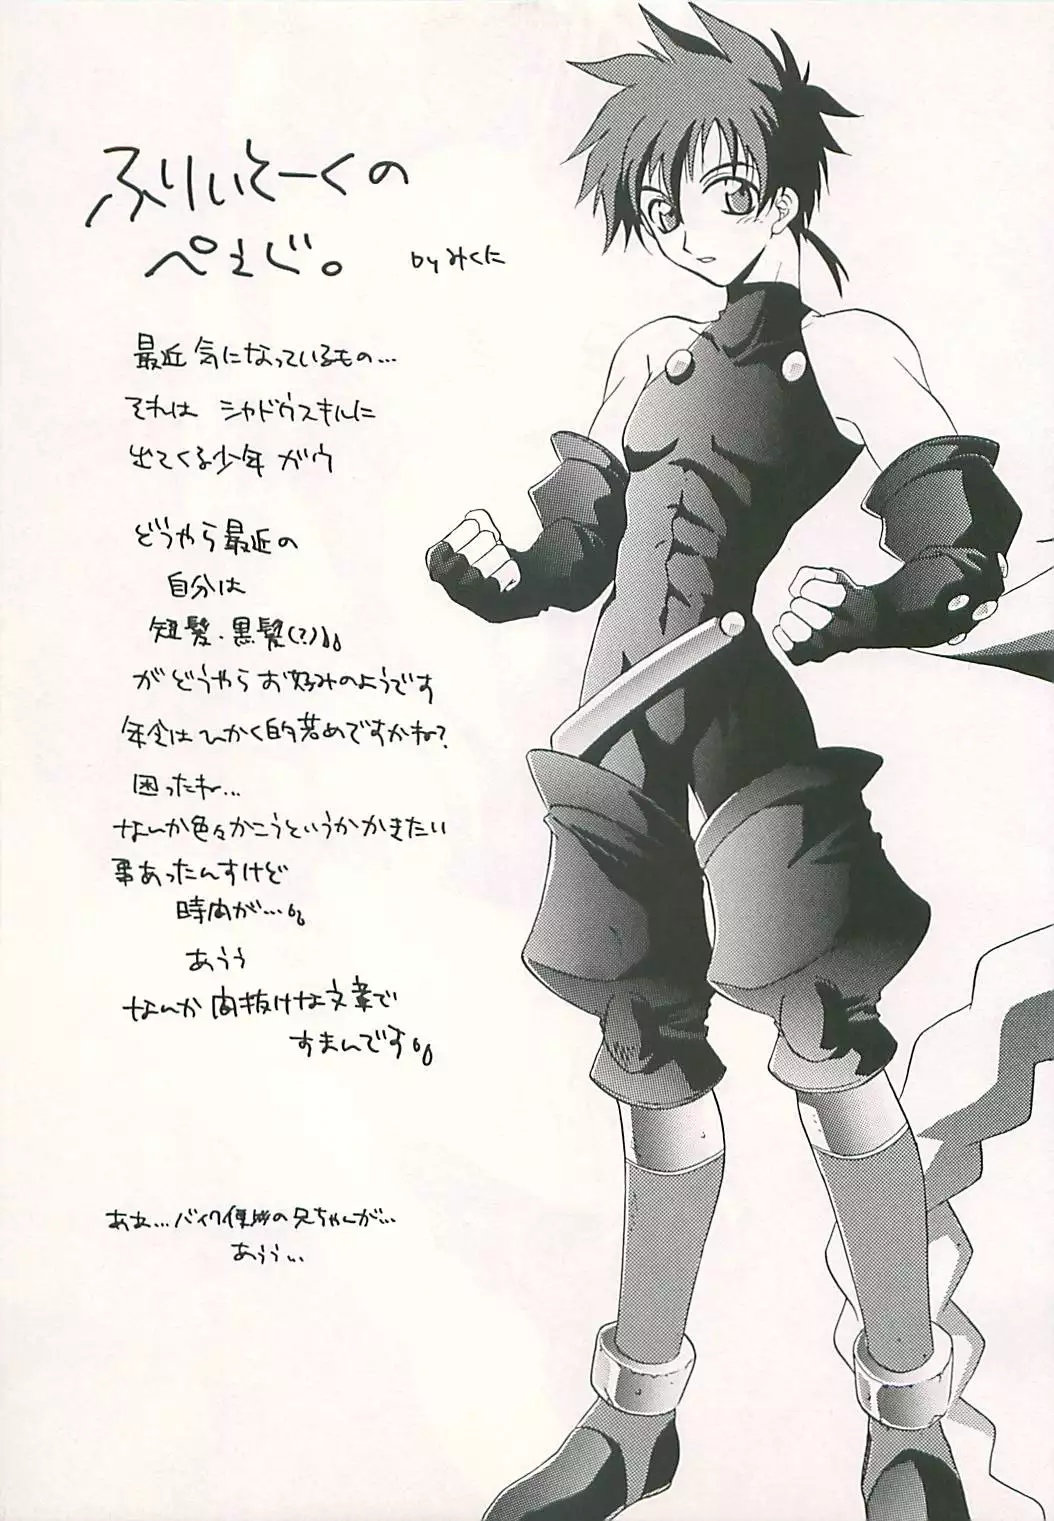 ふりぃとーくの
ぺぇじ。
by みくに
最近 気になっているもの…
それは シャドウスキルに
出てくる少年 ガウ
どうやら最近の
自分は
短髪・黒髪(?)
がどうやら お好みのようです
年令はひかく的若めですかね?
困ったね…
なんか色々かこうというかかきたい
事あったんすけど
時間が…。
あうう
なんか 間抜けな文章で
すまんです。
ああ…バイク便の兄ちゃんが…
あうう…